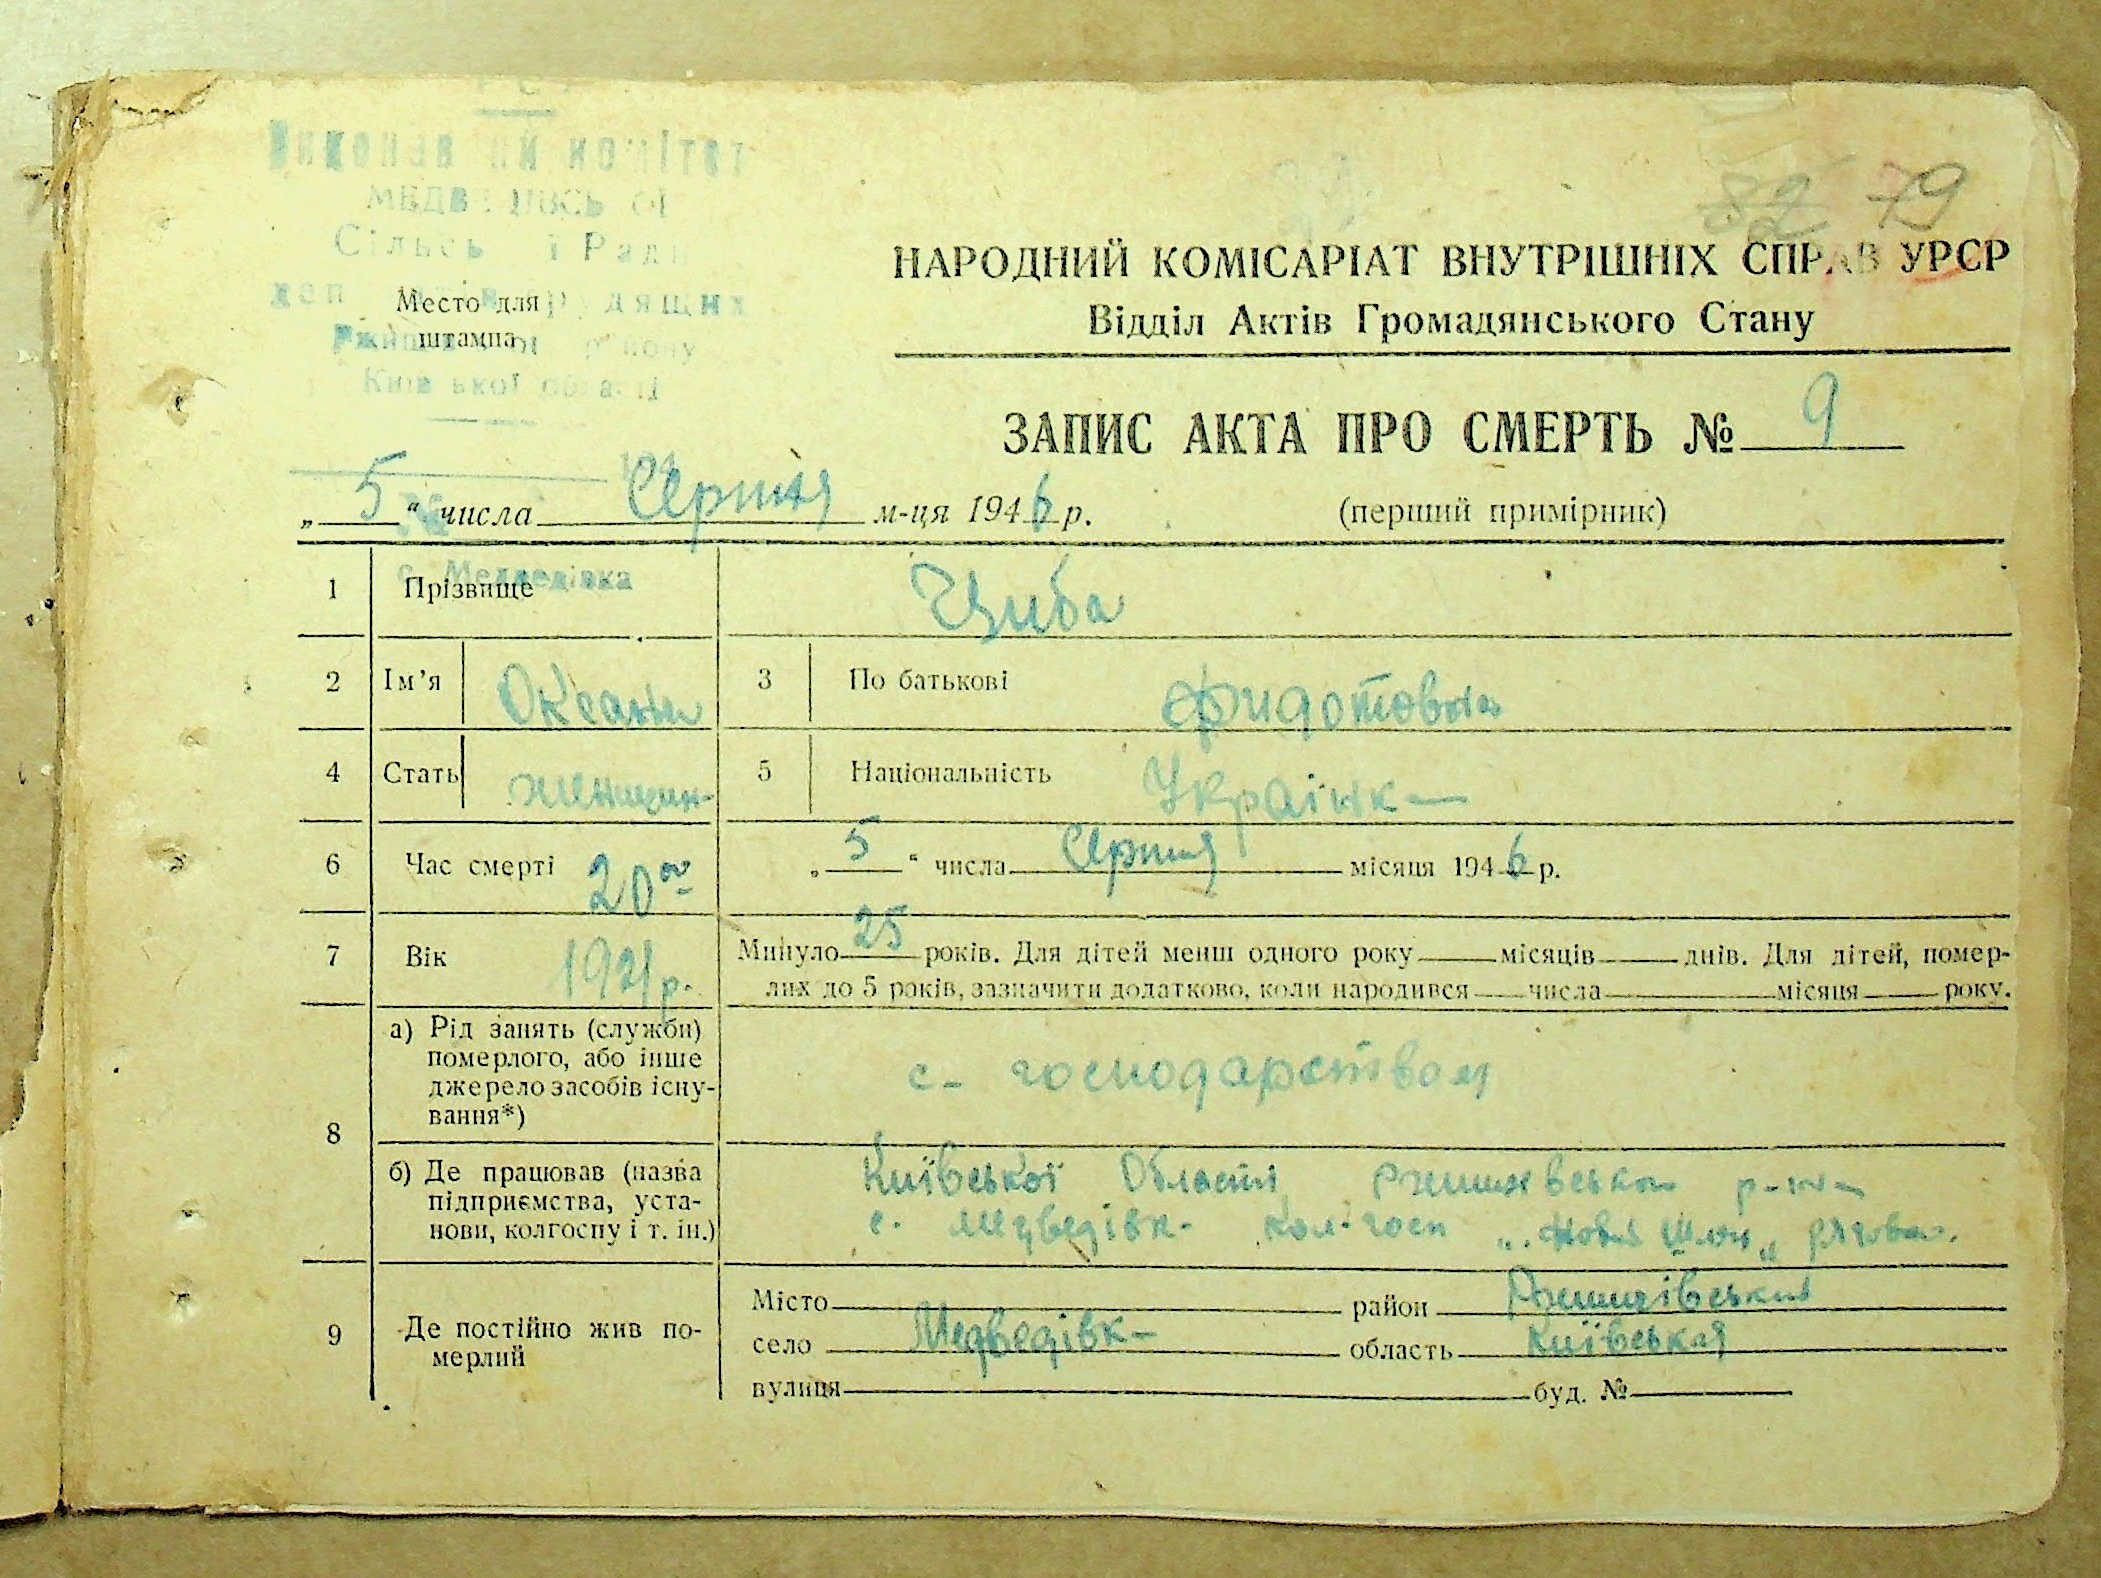 82 79
Виконавчий комітет
МЕДВЕДІВСЬКОЇ
Сільської Ради
депутатів трудящих
Ржищівського району
Київської області
Место для
штампа
194
№
с. Медведівка
НАРОДНИЙ КОМІСАРІАТ ВНУТРІШНІХ СПРАВ УРСР
Відділ Актів Громадянського Стану
ЗАПИС АКТА ПРО СМЕРТЬ № 9
„ 5 “ числа Серпня м-ця 1946 р. (перший примірник)
1 Прізвище Циба
2 Ім’я Оксана 3 По батькові Фидотовна
4 Стать женщин- 5 Національність Українк-
6 Час смерті 20⁰⁰ „ 5 “ числа Серпня місяця 1946 р.
7 Вік 1921 р. Минуло 25 років. Для дітей менш одного року місяців днів. Для дітей, помер-
лих до 5 років, зазначити додатково, коли народився числа місяця року.
8 а) Рід занять (служби)
померлого, або інше
джерело засобів існу-
вання*)
с- господарством
б) Де працював (назва
підприємства, уста-
нови, колгоспу і т. ін.)
Київської Області Ржищевськом р-н-
с. Медведівк- кол-госп „Новий Шлях„ рядова.
9 Де постійно жив по-
мерлий
Місто район Ржищівський
село Медведівк- область Київська
вулиця буд. №